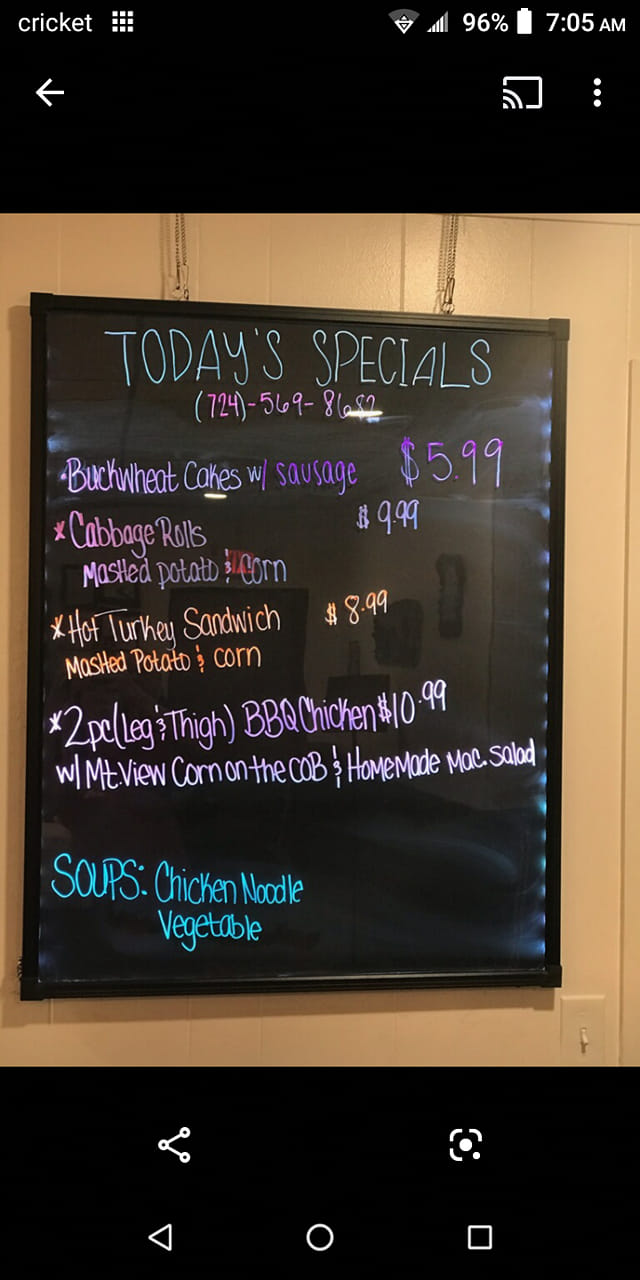 cricket 96% 7:05 AM
TODAY'S SPECIALS
(724)-569-8682
•Buckwheat Cakes w/ sausage $5.99
*Cabbage Rolls $9.99
MasHed potato & Corn
*Hot Turkey Sandwich $8.99
MasHed Potato & corn
*2pc(Leg & Thigh) BBQ Chicken $10.99
w/ Mt.View Corn on the COB & HomeMade Mac. Salad
SOUPS: Chicken Noodle
Vegetable